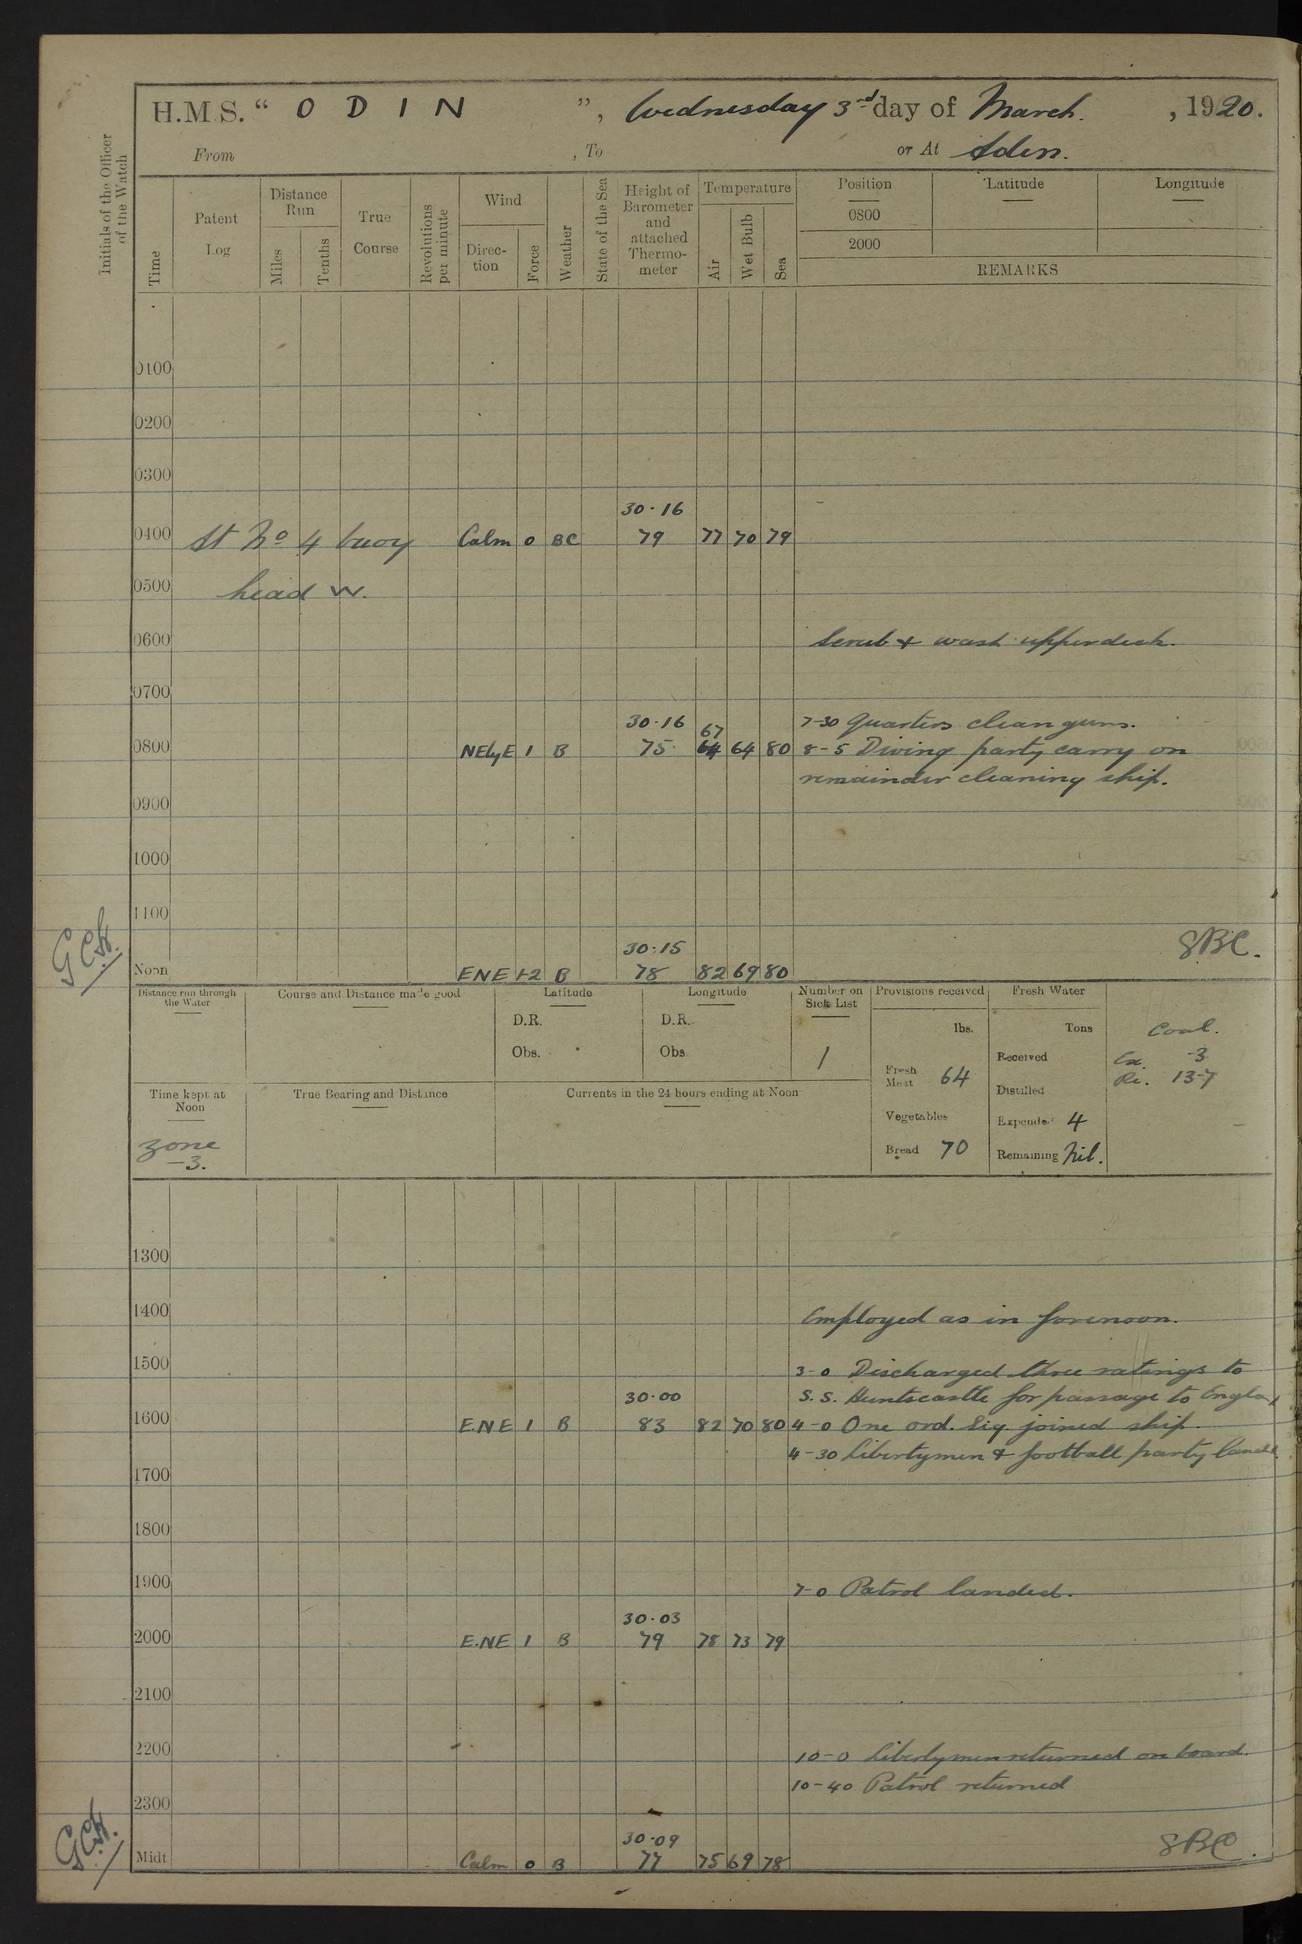 H.M.S. “ O D I N ”, Wednesday 3rd day of March. , 1920.
From , To or At Aden.
Initials of the Officer of the Watch
Time
Patent Log
Distance Run
Miles
Tenths
True Course
Revolutions per minute
Wind
Direc-tion
Force
Weather
State of the Sea
Height of Barometer and attached Thermo-meter
Temperature
Air
Wet Bulb
Sea
Position Latitude Longitude
0800
2000
REMARKS
0100
0200
0300
30.16
0400 At No 4 buoy Calm 0 BC 79 77 70 79
0500 head W.
0600 Scrub & wash upperdeck.
0700
30.16 67 7-30 Quarters clean guns.
0800 NEbyE 1 B 75 64 64 80 8-5 Diving party carry on
remainder cleaning ship.
0900
1000
1100
30.15 SBC.
Noon ENE 1-2 B 78 82 69 80
Distance run through the Water
Course and Distance made good
Latitude
D.R.
Obs.
Longitude
D.R.
Obs
Number on Sick List
1
Provisions received
lbs.
Fresh Meat 64
Vegetables
Bread 70
Fresh Water
Tons
Received
Distilled
Expended 4
Remaining Nil.
Coal.
Ex. -3
Re. 137
Time kept at Noon
zone -3.
True Bearing and Distance
Currents in the 24 hours ending at Noon
1300
1400 Employed as in forenoon.
1500 3-0 Discharged three ratings to
30.00 S.S. Huntscastle for passage to England
1600 E.NE 1 B 83 82 70 80 4-0 One ord. Sig joined ship.
4-30 Libertymen & football party landed.
1700
1800
1900 7-0 Patrol landed.
30.03
2000 E.NE 1 B 79 78 73 79
2100
2200 10-0 Libertymen returned on board.
10-40 Patrol returned
2300
30.09 SBC.
Midt Calm 0 B 77 75 69 78